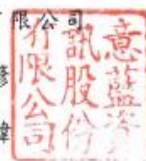 限公司
意藍資
訊股份
有限公司